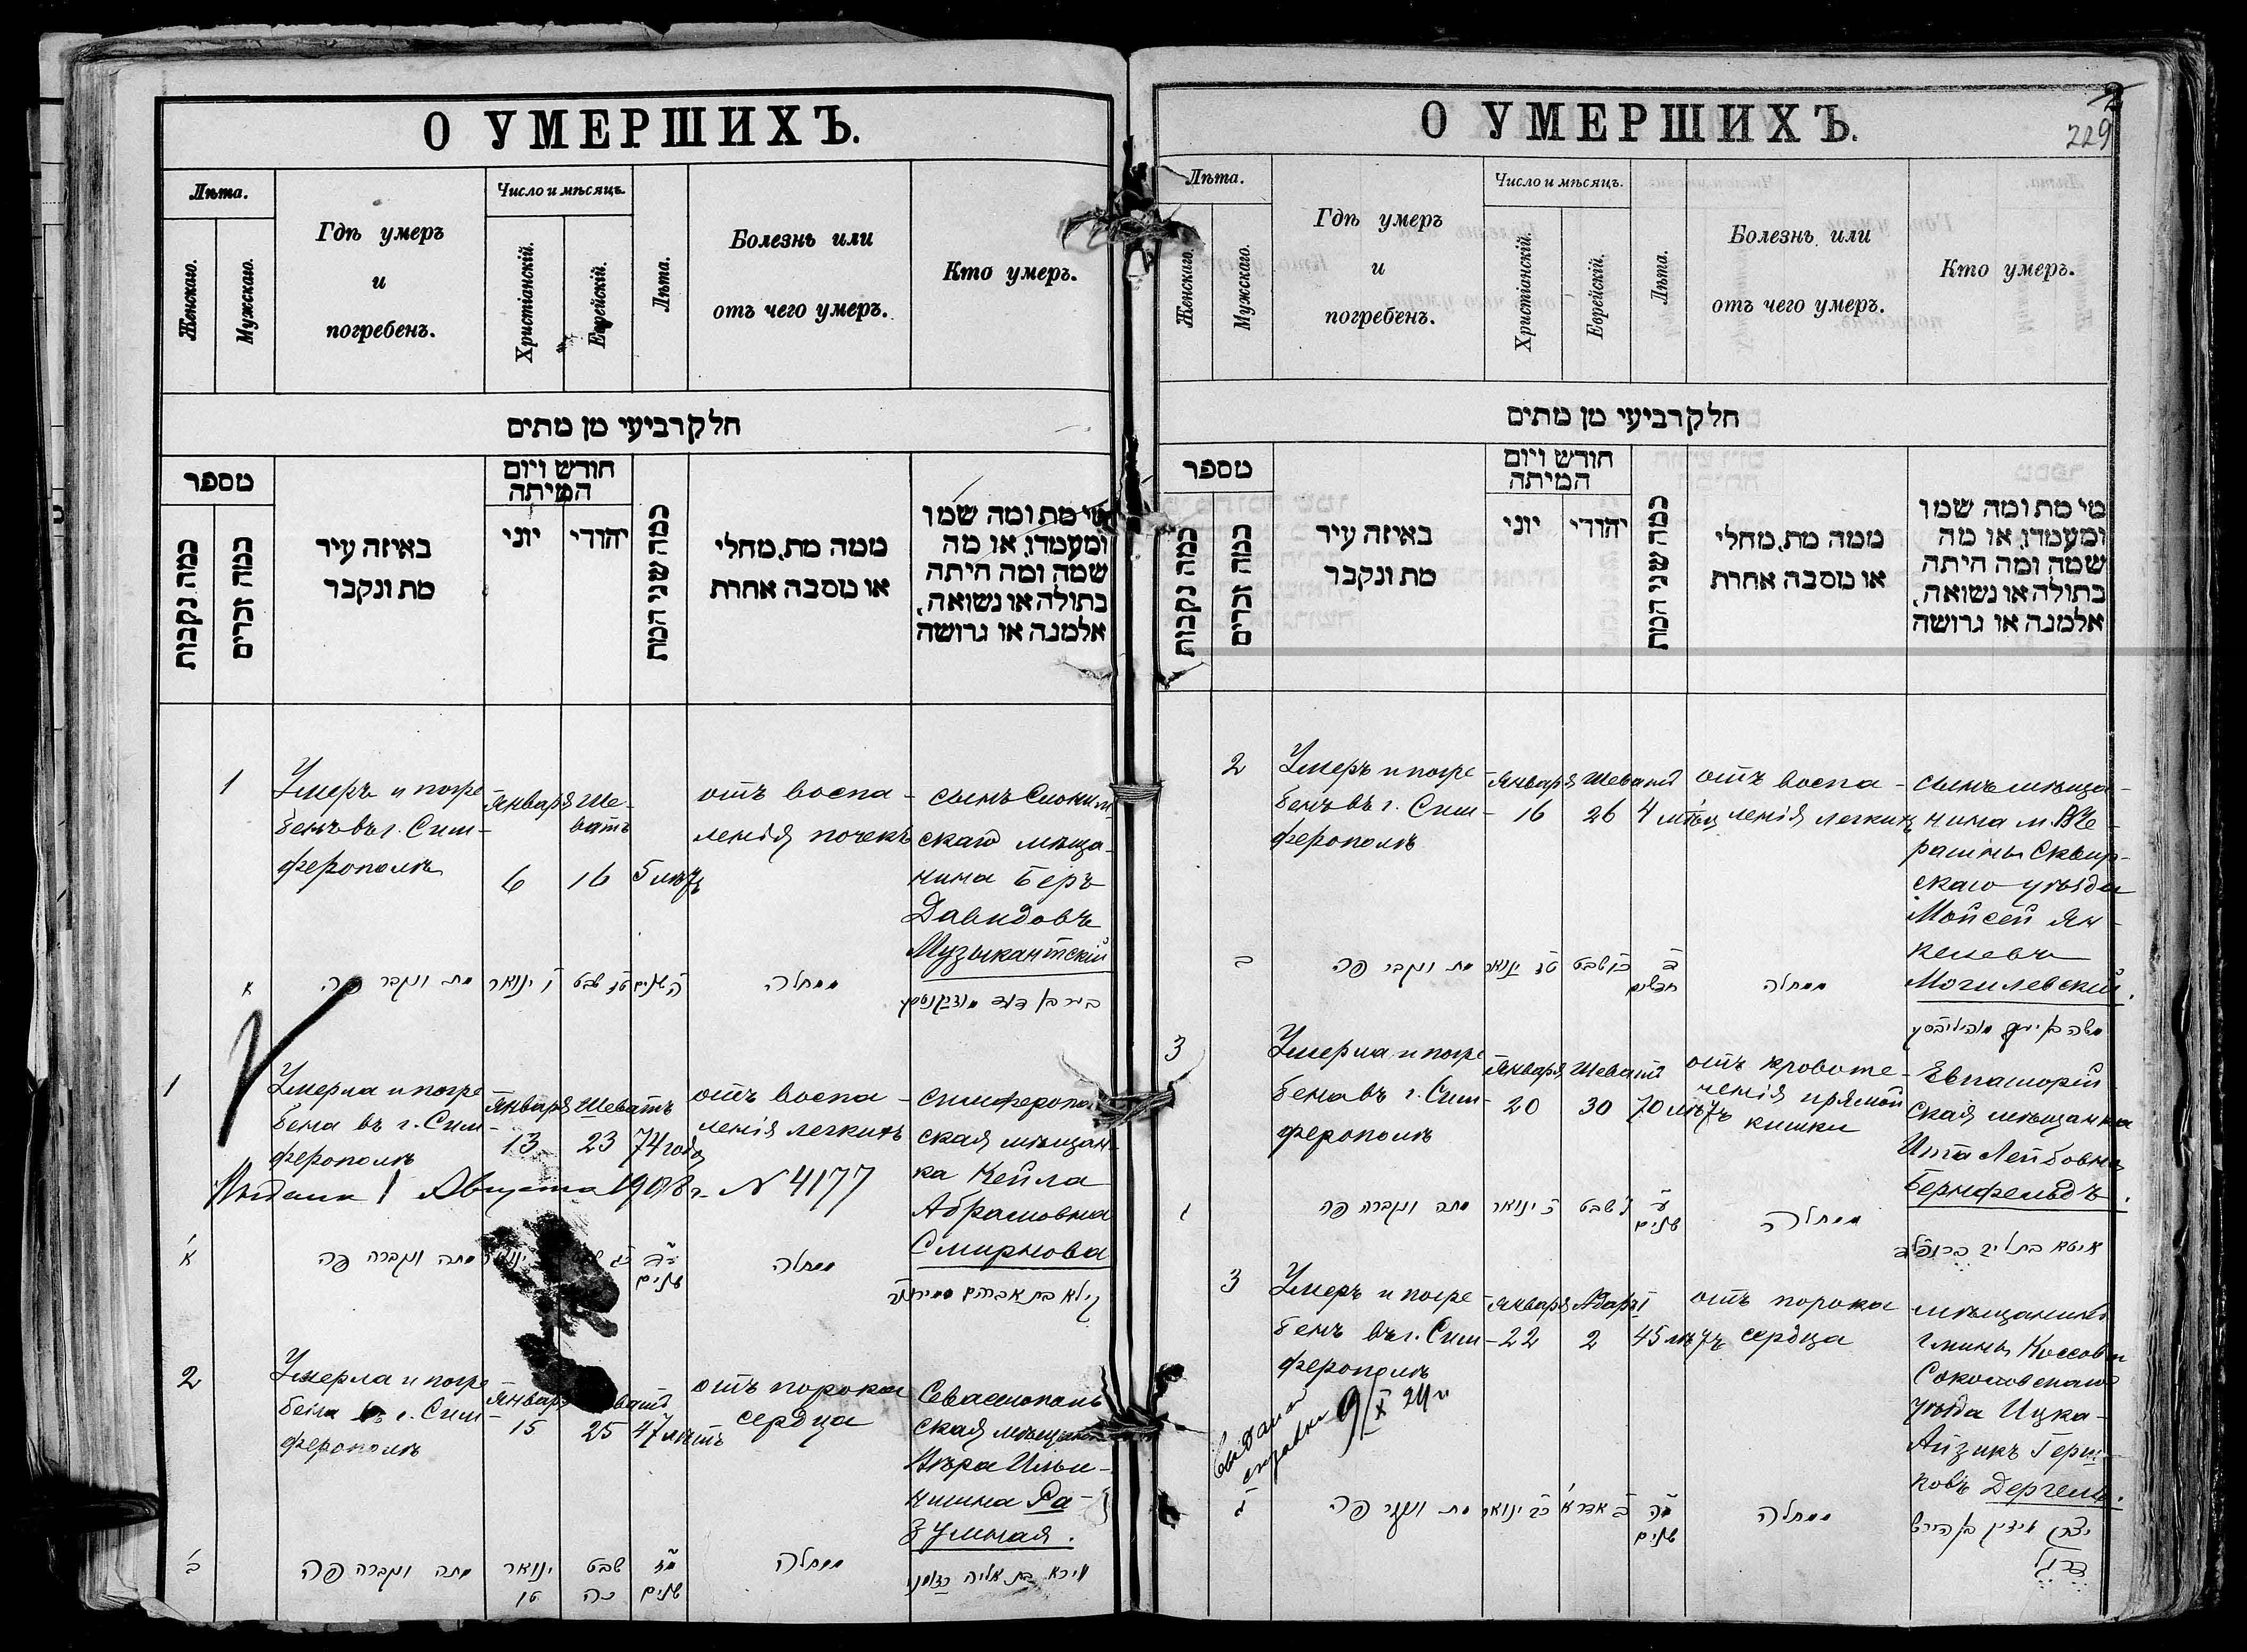 О УМЕРШИХЪ.
Лѣта.
Женскаго.
Мужскаго.
Гдѣ умеръ
и
погребенъ.
Число и мѣсяцъ.
Христіанскій.
Еврейскій.
Лѣта.
Болезнь или
отъ чего умеръ.
Кто умеръ.
חלק רביעי מן מתים
מספר
כמה נקבות
כמה זכרים
באיזה עיר
מת ונקבר
חודש ויום
המיתה
יוני
יהודי
כמה שני המת
ממה מת, מחלי
או מסבה אחרת
מי מת ומה שמו
ומעמדו, או מה
שמה ומה היתה
בתולה או נשואה,
אלמנה או גרושה
1
Умеръ и погре
бенъ въ г. Сим-
ферополѣ
Января
6
Ше-
ватъ
16
5 лѣтъ
отъ воспа-
ленія почекъ
сынъ Слоним
скаго мѣща-
нина Беръ
Давидовъ
Музыкантскій
א
מת ונקבר פה
ו ינואר
טז שבט
ה שנים
ממחלה
בער בן דוד
1
Умерла и погре
бена въ г. Сим-
ферополѣ
Января
13
Шеватъ
23
74 года
отъ воспа-
ленія легкихъ
симферопо
ская мѣщан-
ка Кейла
Абрамовна
Смирнова
Выдана 1 Августа 1908 г. N 4177
א
מתה ונקברה פה
עד
שנים
ממחלה
קילא בת אברהם
2
Умерла и погре
бена въ г. Сим-
ферополѣ
15
25
47 лѣтъ
отъ порока
сердца
Севастополь
ская мѣщан
Вѣра Ильи-
нишна Ра-
зумная.
ב
מתה ונקברה פה
ינואר
טו
שבט
כה
מז
שנים
ממחלה
ווירא בת אליה
О УМЕРШИХЪ.
2
229
Лѣта.
Женскаго.
Мужскаго.
Гдѣ умеръ
и
погребенъ.
Число и мѣсяцъ.
Христіанскій.
Еврейскій.
Лѣта.
Болезнь или
отъ чего умеръ.
Кто умеръ.
חלק רביעי מן מתים
מספר
כמה נקבות
כמה זכרים
באיזה עיר
מת ונקבר
חודש ויום
המיתה
יוני
יהודי
כמה שני המת
ממה מת, מחלי
או מסבה אחרת
מי מת ומה שמו
ומעמדו, או מה
שמה ומה היתה
בתולה או נשואה,
אלמנה או גרושה
2
Умеръ и погре
бенъ въ г. Сим-
ферополѣ
Января
16
Шеватъ
26
4 мѣсц
отъ воспа-
ленія легкихъ
сынъ мѣща-
нина м.
Сквир-
скаго уѣзда
Мойсей Ян-
келевъ
Могилевскій.
ב
מת ונקבר פה
טז ינואר
כו שבט
חדשים
ממחלה
משה בן
3
Умерла и погре
бена въ г. Сим-
ферополѣ
Января
20
Шеватъ
30
70 лѣтъ
отъ кровоте-
ченія прямой
кишки
Евпаторій-
ская мѣщанка
Ита Лейбовна
Бернфельдъ.
ג
מתה ונקברה פה
כ ינואר
ל שבט
ע
שנים
ממחלה
איטא בת ליב
3
Умеръ и погре
бенъ въ г. Сим-
ферополѣ
Января
22
Адаръ I
2
45 лѣтъ
отъ порока
сердца
мѣщанинъ
гмины Коссовъ
Соколовскаго
уѣзда Ицка-
Айзикъ Герш-
ковъ Дергель.
Выдана
справка 9/X 24 г
ג
מת ונקבר פה
כב ינואר
ב אדר א
מה
שנים
ממחלה
יצחק אייזיק בן הירש
דרגל